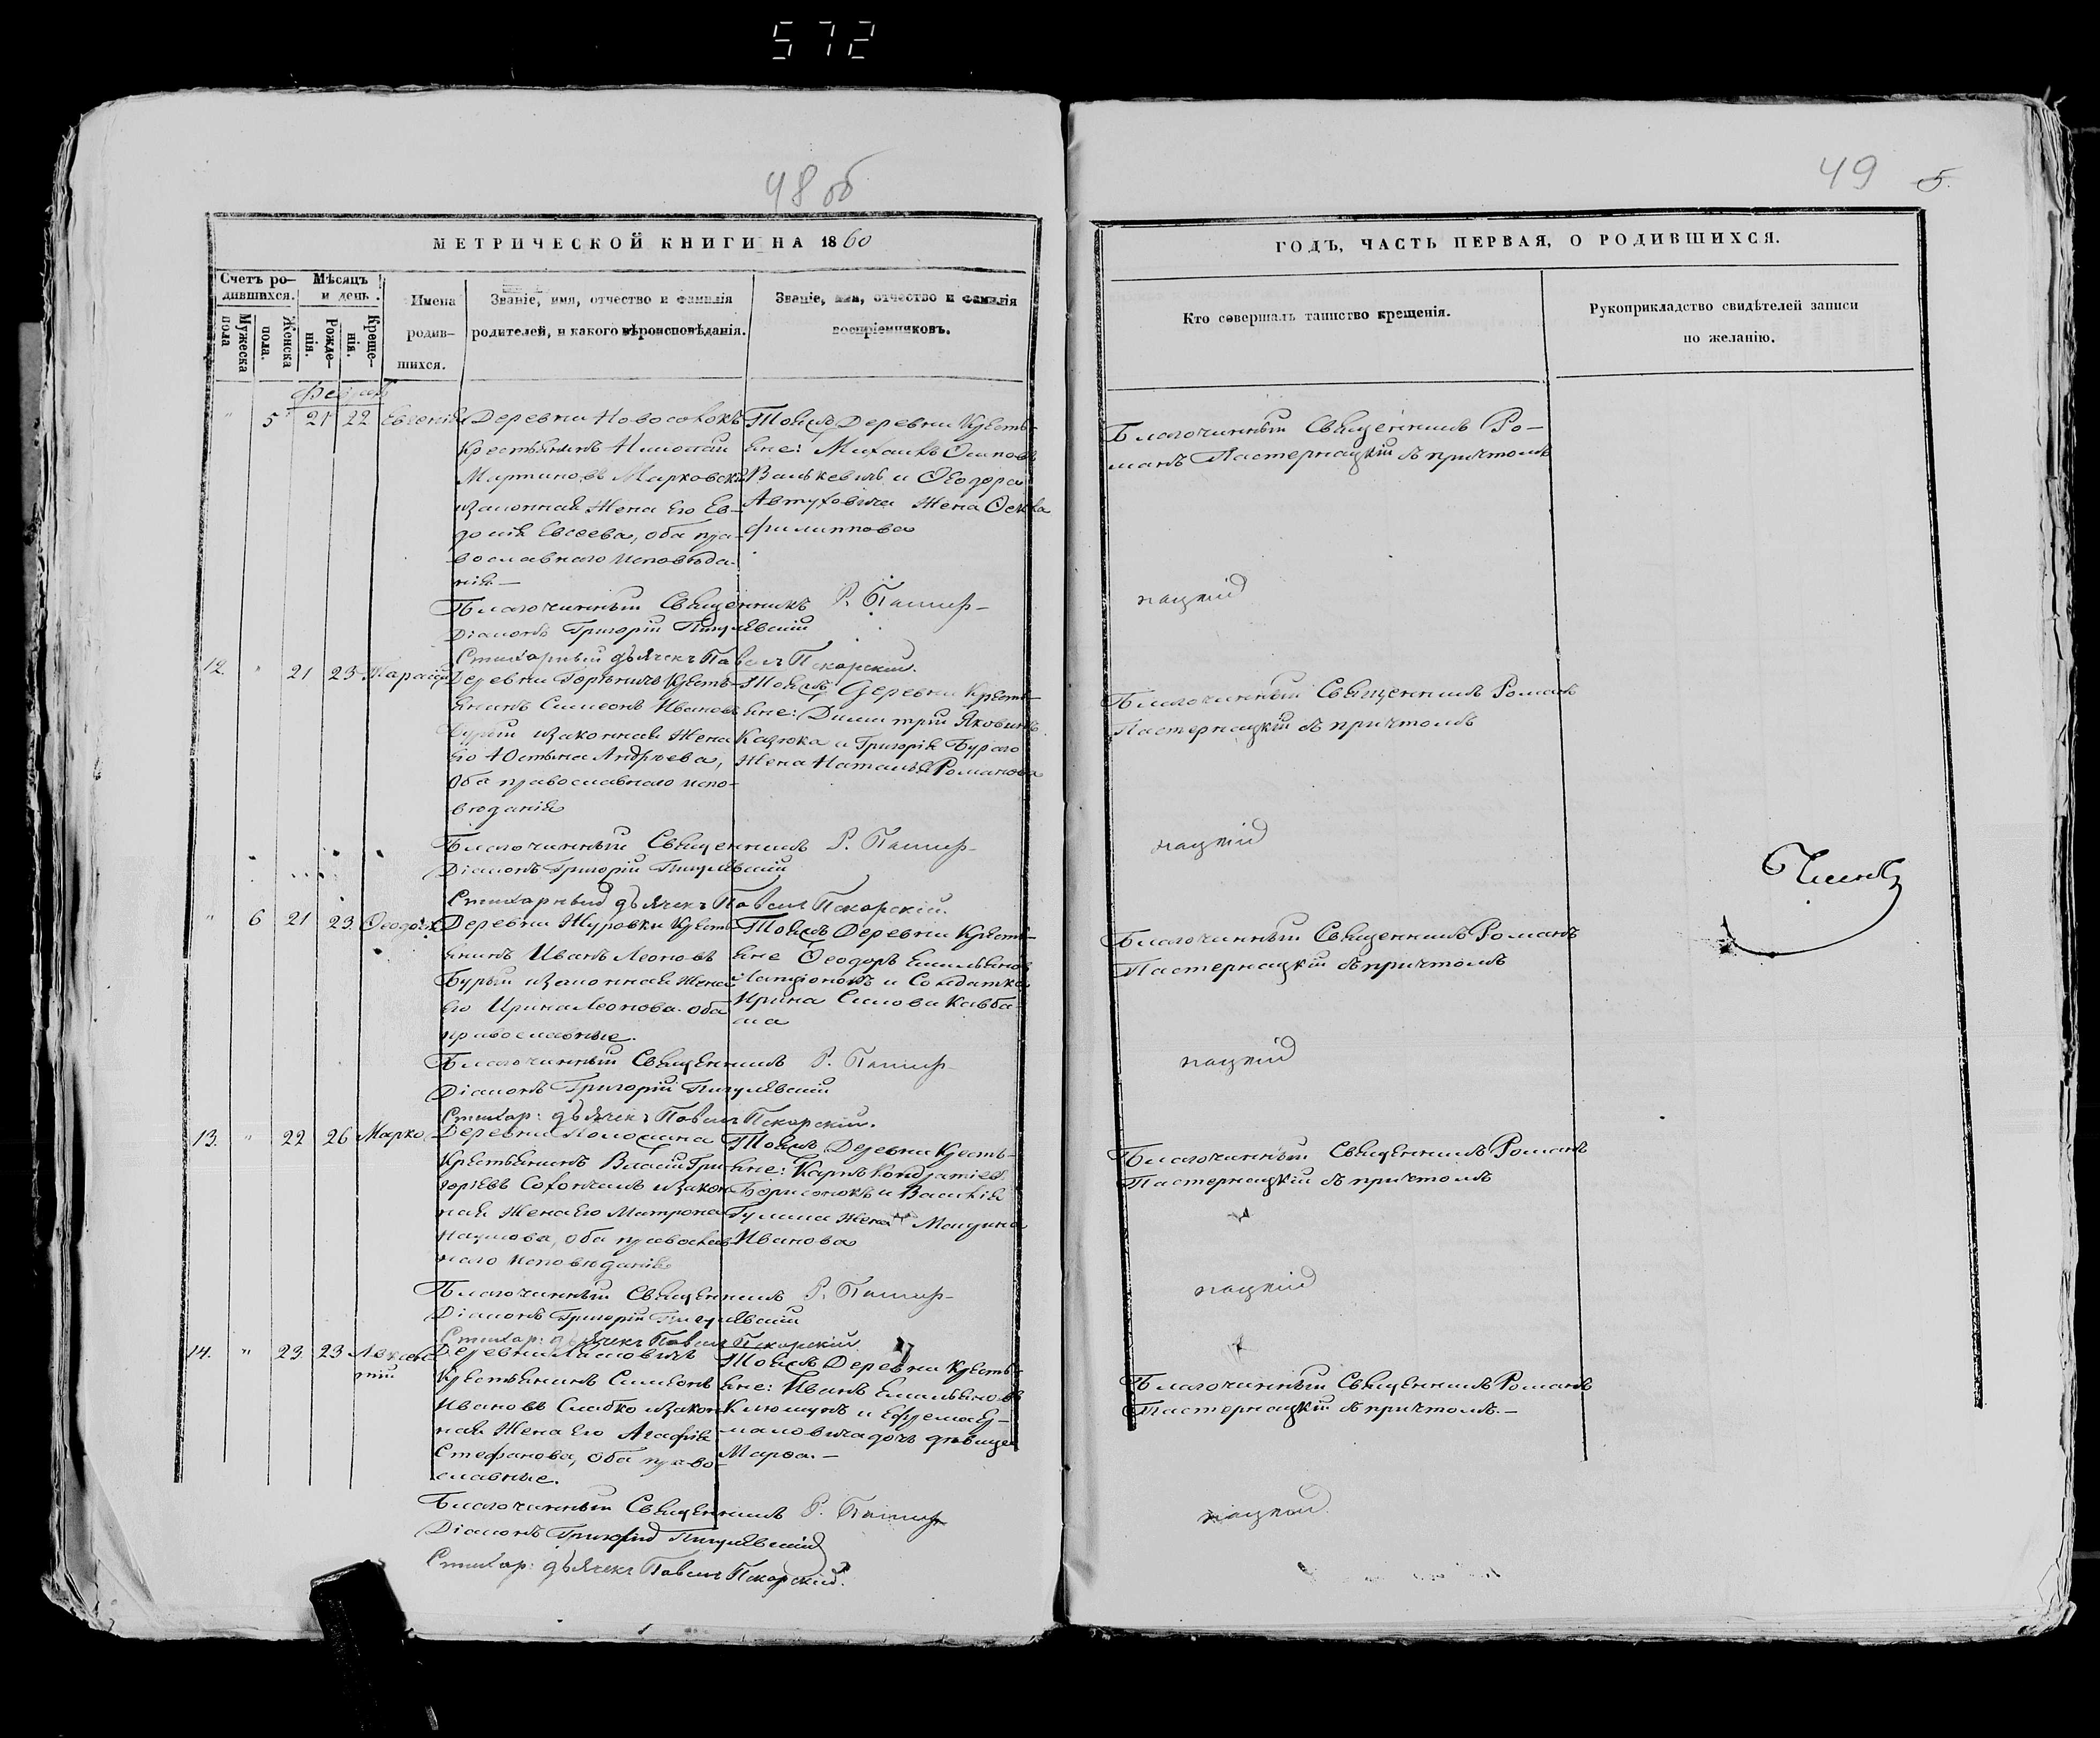 572
48 об
МЕТРИЧЕСКОЙ КНИГИ НА 1860
Счетъ ро-
дившихся.
Мѣсяцъ
и день.
Мужеска
пола
Женска
пола.
Рожде-
нія.
Креще-
нія.
Имена
родив-
шихся.
Званіе, имя, отчество и фамилія
родителей, и какого вѣроисповѣданія.
Званіе, имя, отчество и фамилія
воспріемниковъ.
" 5 21 22 Евгенія
Деревни Новосіокъ
Крестьянинъ Николай
Мартиновъ Марковскі
законная Жена Его Ев-
докія Евсеева, оба пра-
вославнаго исповѣда-
нія.—
Тойже Деревни Кресть-
яне: Михаилъ Осиповъ
Валькевичъ и Ѳеодора
Автуховича Жена Ѳекла
Филиппова
Благочинный Священникъ Р. Пастер-
Діаконъ Григорій Пигулевскій
Стихарный дьячекъ Павелъ Пекарскій.
12. " 21 23 Тарасій
Деревни Горбичъ Кресть-
янинъ Симеонъ Ивановъ
Бурый законная Жена
Его Юстина Андреева,
Оба православнаго испо-
веданія
Тойже Деревни Кресть-
яне: Димитрій Яковичъ
Кацюка и Григорія Бураго
Жена Наталья Романова
Благочинный Священникъ Р. Пастер-
Діаконъ Григорій Пигулевскій
Стихарный дьячекъ Павелъ Пекарскій.
" 6 21 23. Ѳеодосія
Деревни Журовки Кресть
янинъ Иванъ Леоновъ
Бурый законная Жена
Его Ирина Леонова. оба
православные.
Тойже Деревни Кресть-
яне Ѳеодоръ Емильяновъ
и Солдатка
Ирина
Благочинный Священникъ Р. Пастер-
Діаконъ Григорій Пигулевскій
Стихар: дьячекъ Павелъ Пекарскій.
13. " 22 26 Марко
Деревни
Крестьянинъ Власій Гри-
горіевъ закон
ная Жена Его Матрона
Наумова, оба православ-
наго исповеданія
Тойже Деревни Кресть-
яне: Карпъ Кондратіевъ
Борисюкъ и Василія
Гулина Жена
Иванова
Благочинный Священникъ Р. Пастер-
Діаконъ Григорій Пигулевскій
Стихар: дьячекъ Павелъ Пекарскій.
14. " 23. 23 Авксен
тій
Деревни
Крестьянинъ Симеонъ
Ивановъ Слабко закон
ная Жена Его Агафія
Стефанова, Оба право-
славные.
Тойже Деревни Кресть-
яне: Иванъ Емильяновъ
и Ефрема Ер-
маковича дочь девица
Марѳа.—
Благочинный Священникъ Р. Пастер
Діаконъ Григорій Пигулевскій
Стихар: дьячекъ Павелъ Пекарскій.
49 5.
ГОДЪ, ЧАСТЬ ПЕРВАЯ, О РОДИВШИХСЯ.
Кто совершалъ таинство крещенія.
Рукоприкладство свидѣтелей записи
по желанію.
Благочинный Священникъ Ро-
манъ Пастернацкій съ причтомъ
нацкій
Благочинный Священникъ Романъ
Пастернацкій съ причтомъ
нацкій
Благочинный Священникъ Романъ
Пастернацкій съ причтомъ
нацкій
Благочинный Священникъ Романъ
Пастернацкій съ причтомъ
нацкій
Благочинный Священникъ Романъ
Пастернацкій съ причтомъ.—
нацкій